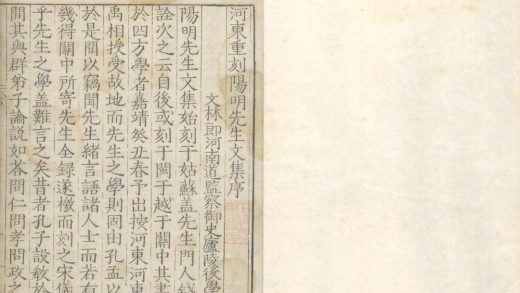 河東重刻陽明先生文集序
文林郎河南道監察御史廬陵後學
陽明先生文集始刻于姑蘇蓋先生門人錢
詮次之云自後或刻于閩于越于關中其書
於四方學者嘉靖癸丑春予出按河東河東
禹相授受故地而先生之學則固由孔孟以
於是間以竊聞先生緒言語諸人士而若有
幾得關中所寄先生全錄遂檄而刻之宋儀
乎先生之學蓋難言之矣昔者孔子設敎於
間其與群弟子論說如答問仁問孝問政之